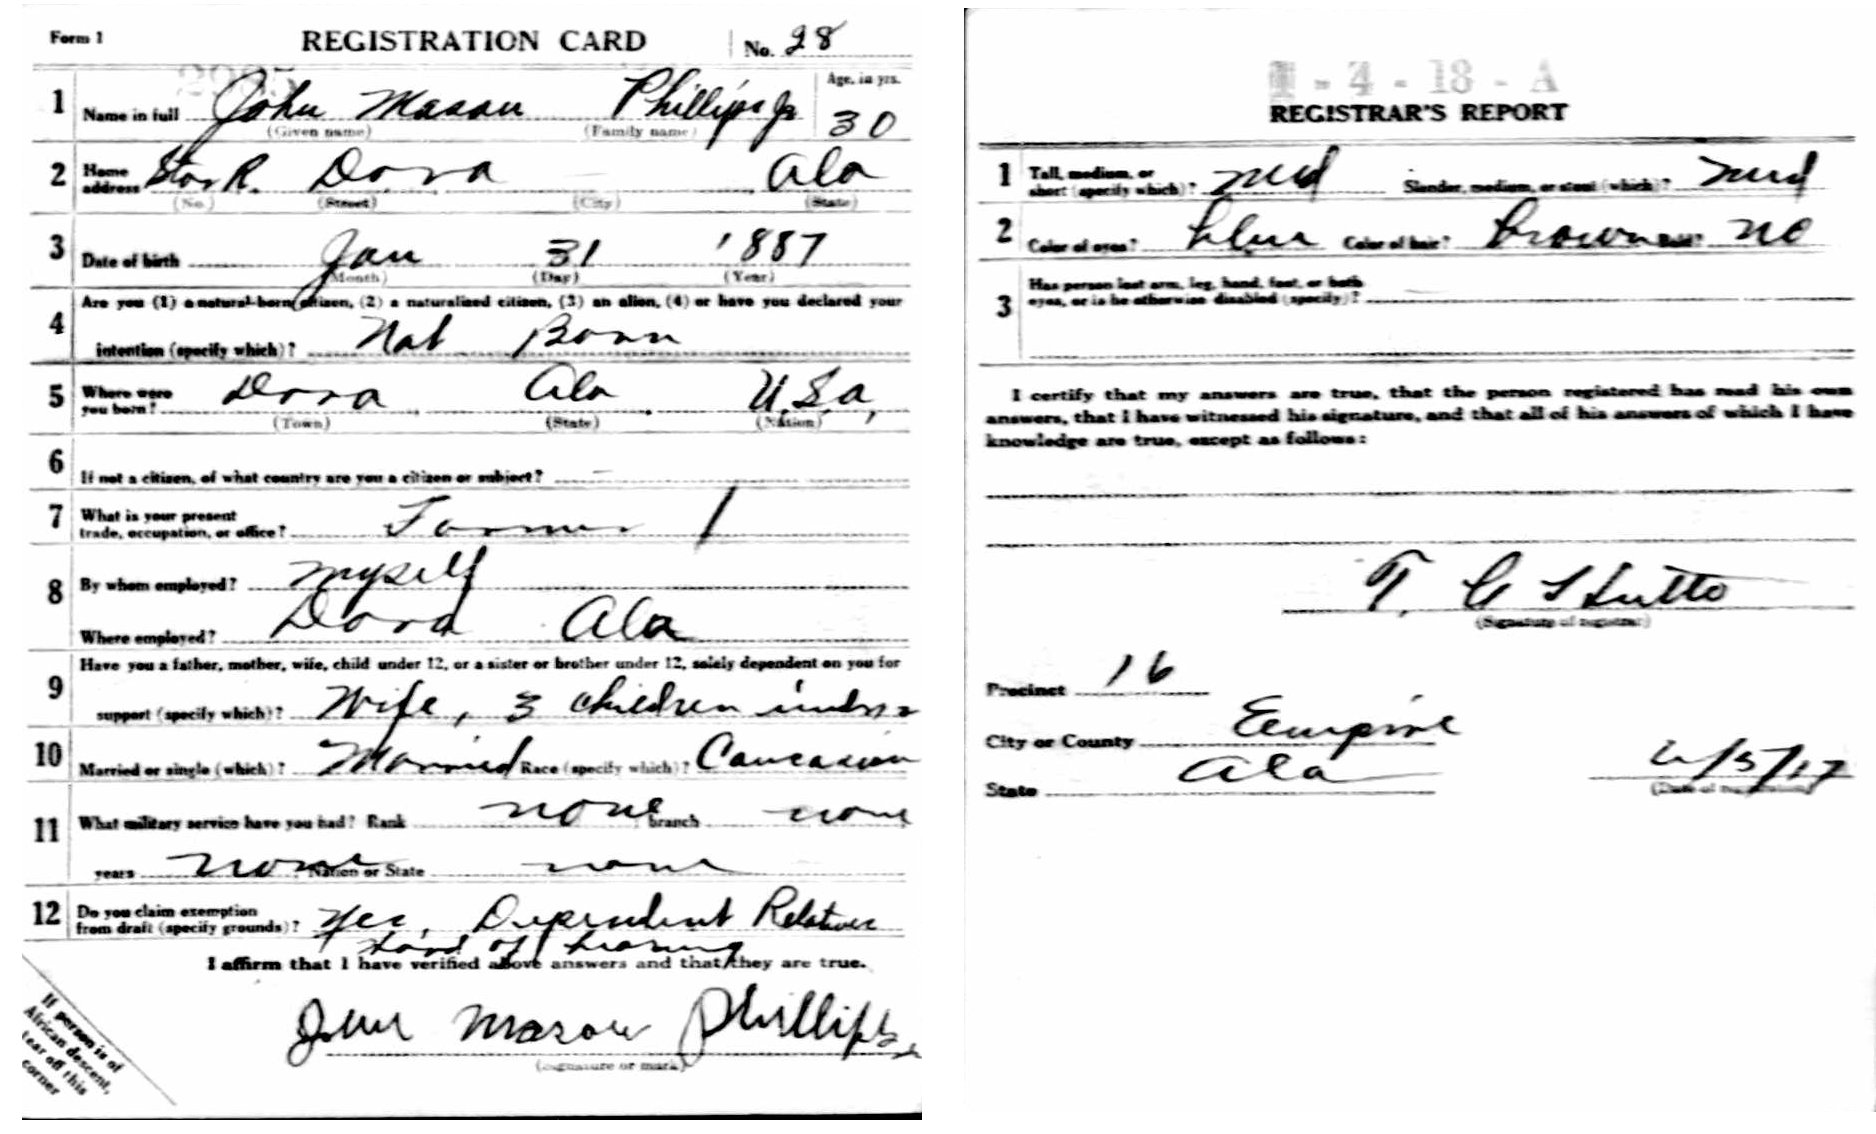 Form 1 REGISTRATION CARD No. 28
1 Name in full John Mason Phillips Jr Age, in yrs. 30
(Given name) (Family name)
2 Home address Star R. Dora Ala
(No.) (Street) (City) (State)
3 Date of birth Jan 31 1887
(Month) (Day) (Year)
4 Are you (1) a natural-born citizen, (2) a naturalized citizen, (3) an alien, (4) or have you declared your
intention (specify which)? Nat Born
5 Where were you born? Dora Ala U.S.a,
(Town) (State) (Nation)
6 If not a citizen, of what country are you a citizen or subject?
7 What is your present
trade, occupation, or office? Farmer 1
8 By whom employed? myself
Where employed? Dora Ala
9 Have you a father, mother, wife, child under 12, or a sister or brother under 12, solely dependent on you for
support (specify which)? Wife, 3 children under
10 Married or single (which)? Married Race (specify which)? Caucasian
11 What military service have you had? Rank none branch none
years none Nation or State none
12 Do you claim exemption
from draft (specify grounds)? Yes, Dependent Relatives
hard of hearing
I affirm that I have verified above answers and that they are true.
John Mason Phillips Jr
(Signature or mark)
If person is of
African descent,
tear off this
corner
1 - 4 - 18 - A
REGISTRAR'S REPORT
1 Tall, medium, or
short (specify which)? med Slender, medium, or stout (which)? med
2 Color of eyes? blue Color of hair? brown Bald? no
3 Has person lost arm, leg, hand, foot, or both
eyes, or is he otherwise disabled (specify)?
I certify that my answers are true, that the person registered has read his own
answers, that I have witnessed his signature, and that all of his answers of which I have
knowledge are true, except as follows:
T. C. Hutto
(Signature of registrar)
Precinct 16
City or County Empire
State Ala 6/5/17
(Date of registration)